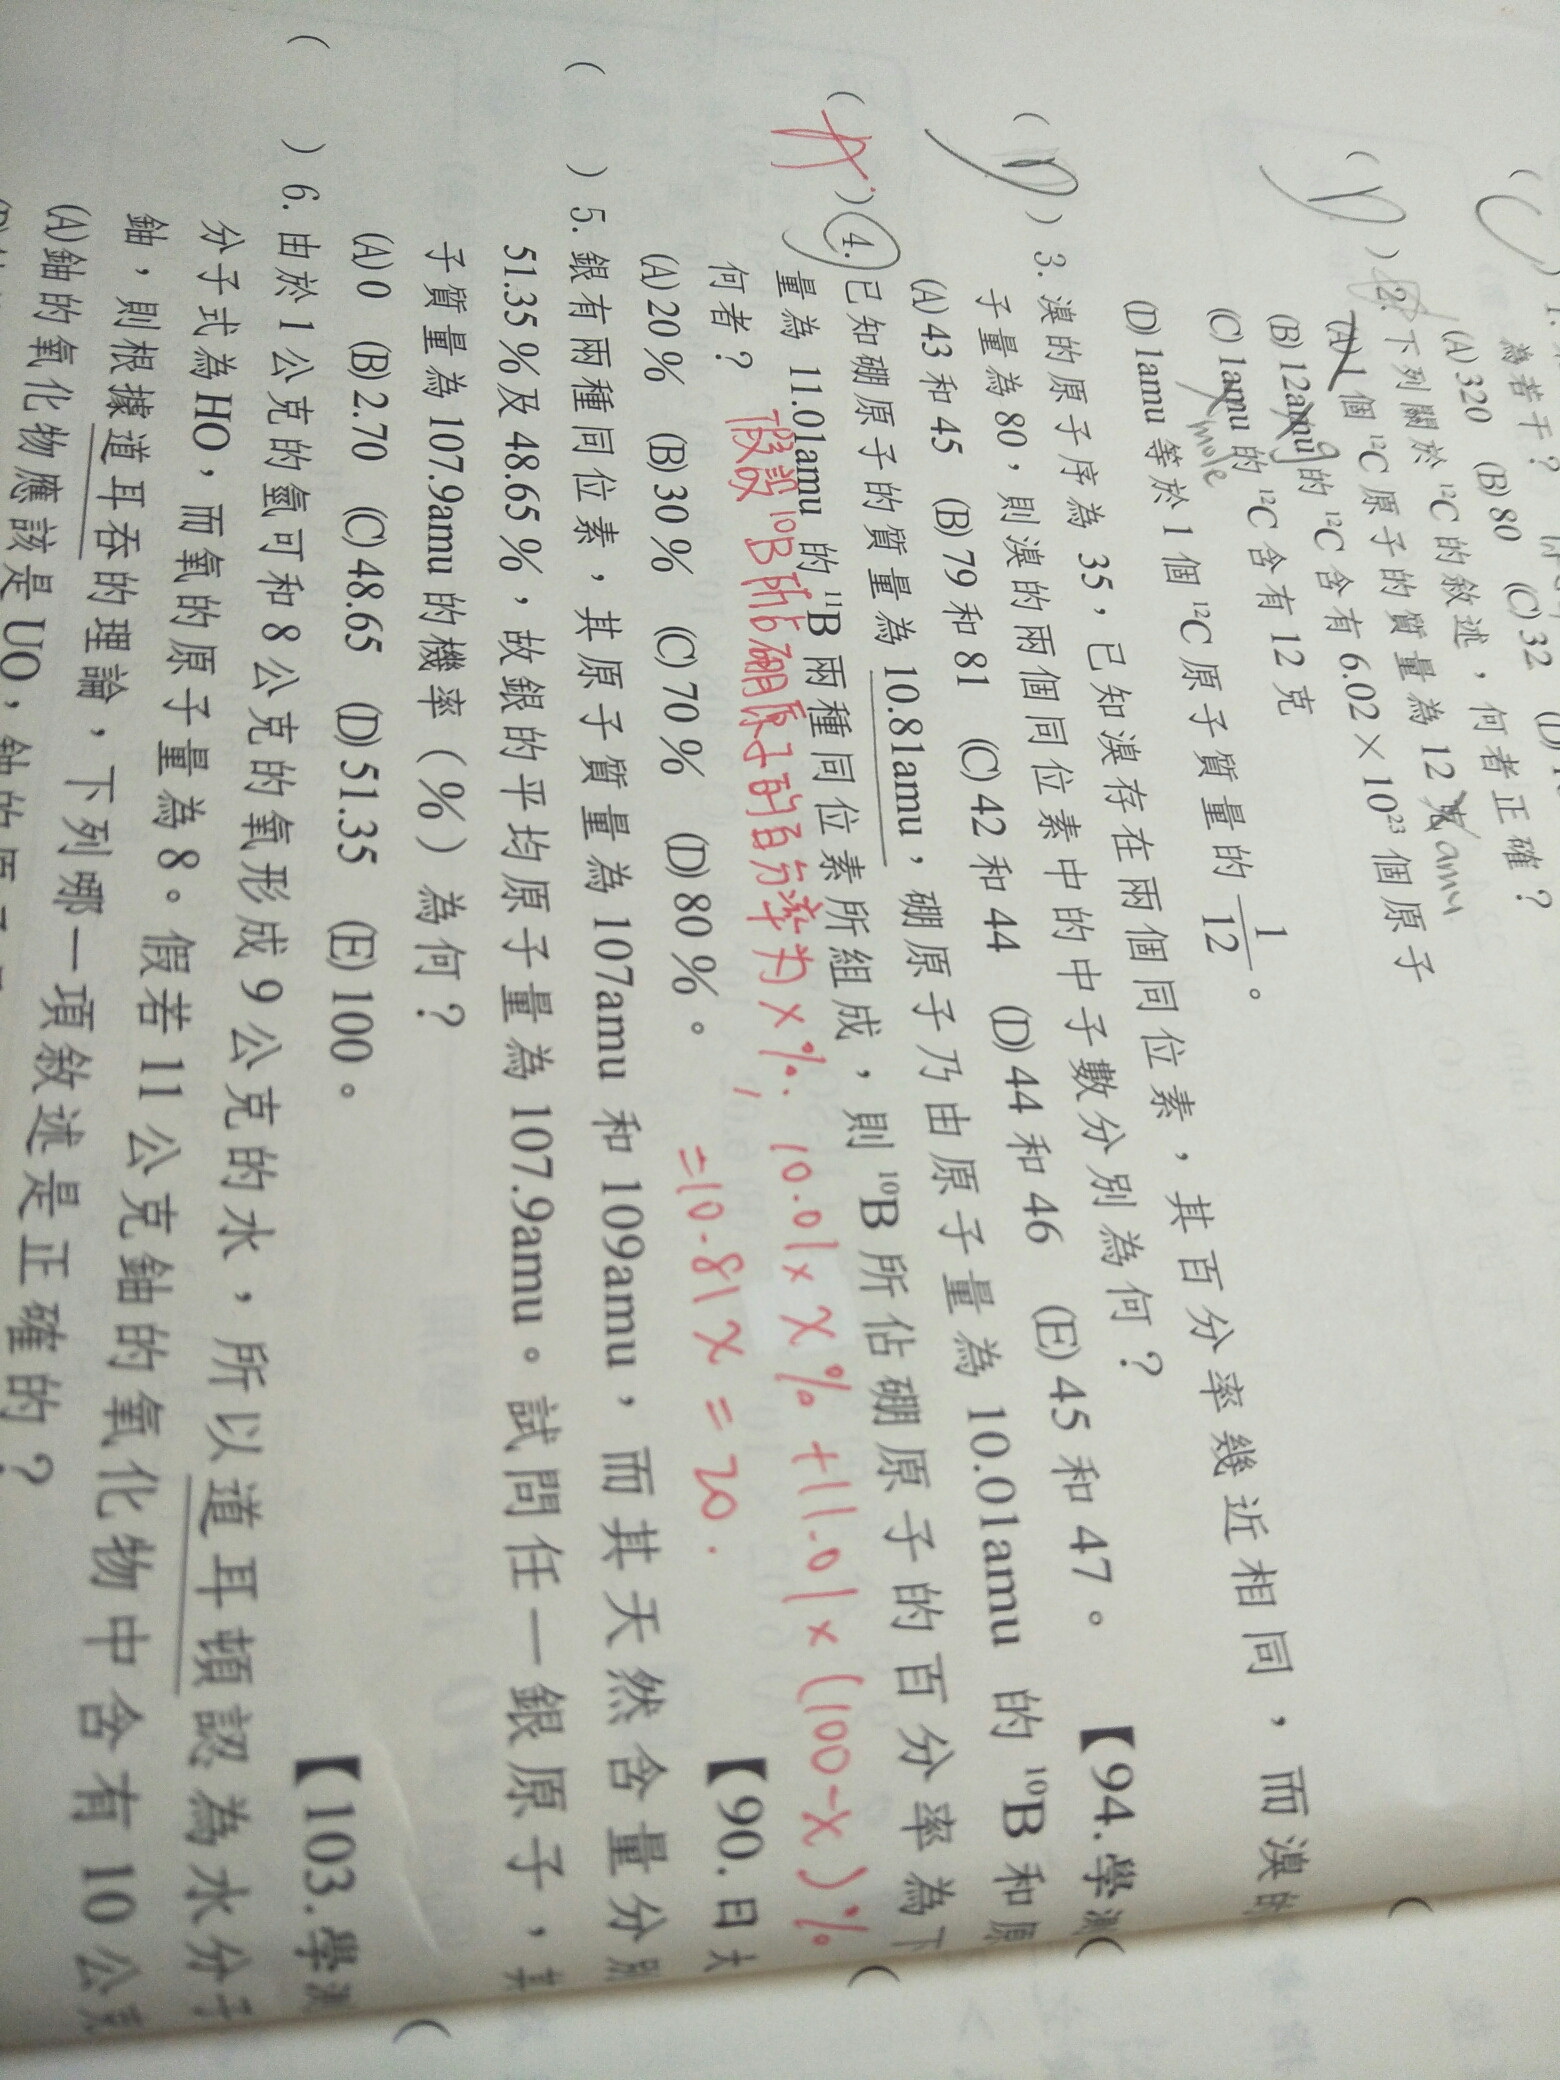 為若干？
(A) 320 (B) 80 (C) 32
2. 下列關於 ¹²C 的敘述，何者正確？
(A) 1 個 ¹²C 原子的質量為 12 克 amu
(B) 12amu g 的 ¹²C 含有 6.02 × 10²³ 個原子
(C) 1amu 的 ¹²C 含有 12 克
mole
(D) 1amu 等於 1 個 ¹²C 原子質量的 1/12。
(D) 3. 溴的原子序為 35，已知溴存在兩個同位素，其百分率幾近相同，而溴的
子量為 80，則溴的兩個同位素中的中子數分別為何？
(A) 43 和 45 (B) 79 和 81 (C) 42 和 44 (D) 44 和 46 (E) 45 和 47。
【94.學測
(A) 4. 已知硼原子的質量為 10.81amu，硼原子乃由原子量為 10.01amu 的 ¹⁰B 和原
量為 11.01amu 的 ¹¹B 兩種同位素所組成，則 ¹⁰B 所佔硼原子的百分率為下
何者？
假設 ¹⁰B 所占硼原子的百分率為 x %. 10.01 × x % + 11.01 × (100-x) %
= 10.81 x = 20.
(A) 20 % (B) 30 % (C) 70 % (D) 80 %。
【90.日大
( ) 5. 銀有兩種同位素，其原子質量為 107amu 和 109amu，而其天然含量分別
51.35 % 及 48.65 %，故銀的平均原子量為 107.9amu。試問任一銀原子，其
子質量為 107.9amu 的機率（%）為何？
(A) 0 (B) 2.70 (C) 48.65 (D) 51.35 (E) 100。
【103.學測
( ) 6. 由於 1 公克的氫可和 8 公克的氧形成 9 公克的水，所以道耳頓認為水分子
分子式為 HO，而氧的原子量為 8。假若 11 公克鈾的氧化物中含有 10 公克
鈾，則根據道耳吞的理論，下列哪一項敘述是正確的？
(A) 鈾的氧化物應該是 UO，鈾的原子